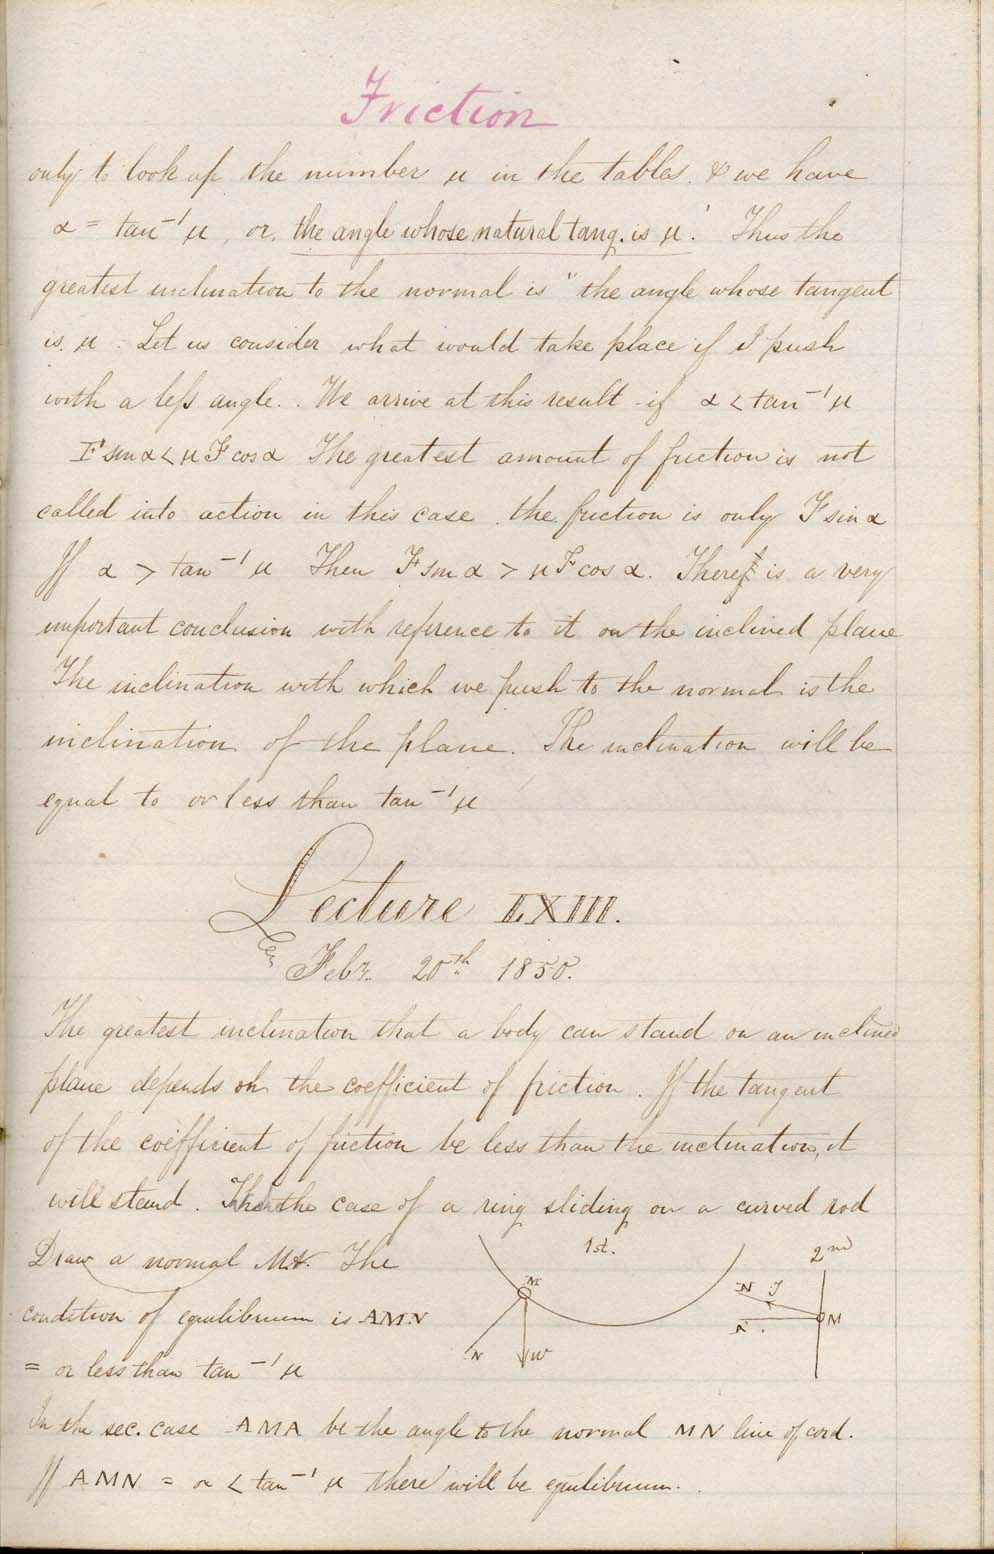 Friction
only to look up the number μ in the tables. & we have
α = tan⁻¹ μ, or, the angle whose natural tang. is μ.' Thus the
greatest inclination to the normal is " the angle whose tangent
is. μ. Let us consider what would take place if I push
with a less angle. We arrive at this result if α < tan⁻¹ μ
F sin α < μ F cos α The greatest amount of friction is not
called into action in this case. the friction is only F sin α
If α > tan⁻¹ μ Then F sin α > μ F cos α. There is a very
important conclusion with reference to it on the inclined plane
The inclination with which we push to the normal is the
inclination of the plane. The inclination will be
equal to or less than tan⁻¹ μ
Lecture LXIII.
Feby. 20th 1850.
The greatest inclination that a body can stand on an inclined
plane depends on the coefficient of friction. If the tangent
of the coefficient of friction be less than the inclination, it
will stand. the case of a ring sliding on a curved rod
Draw a normal The
condition of equilibrium is AMN
= or less than tan⁻¹ μ
1st.
M
N
W
2nd
N T
A.
M
In the sec. case AMA be the angle to the normal MN line of cord.
If AMN = or < tan⁻¹ μ there will be equilibrium.